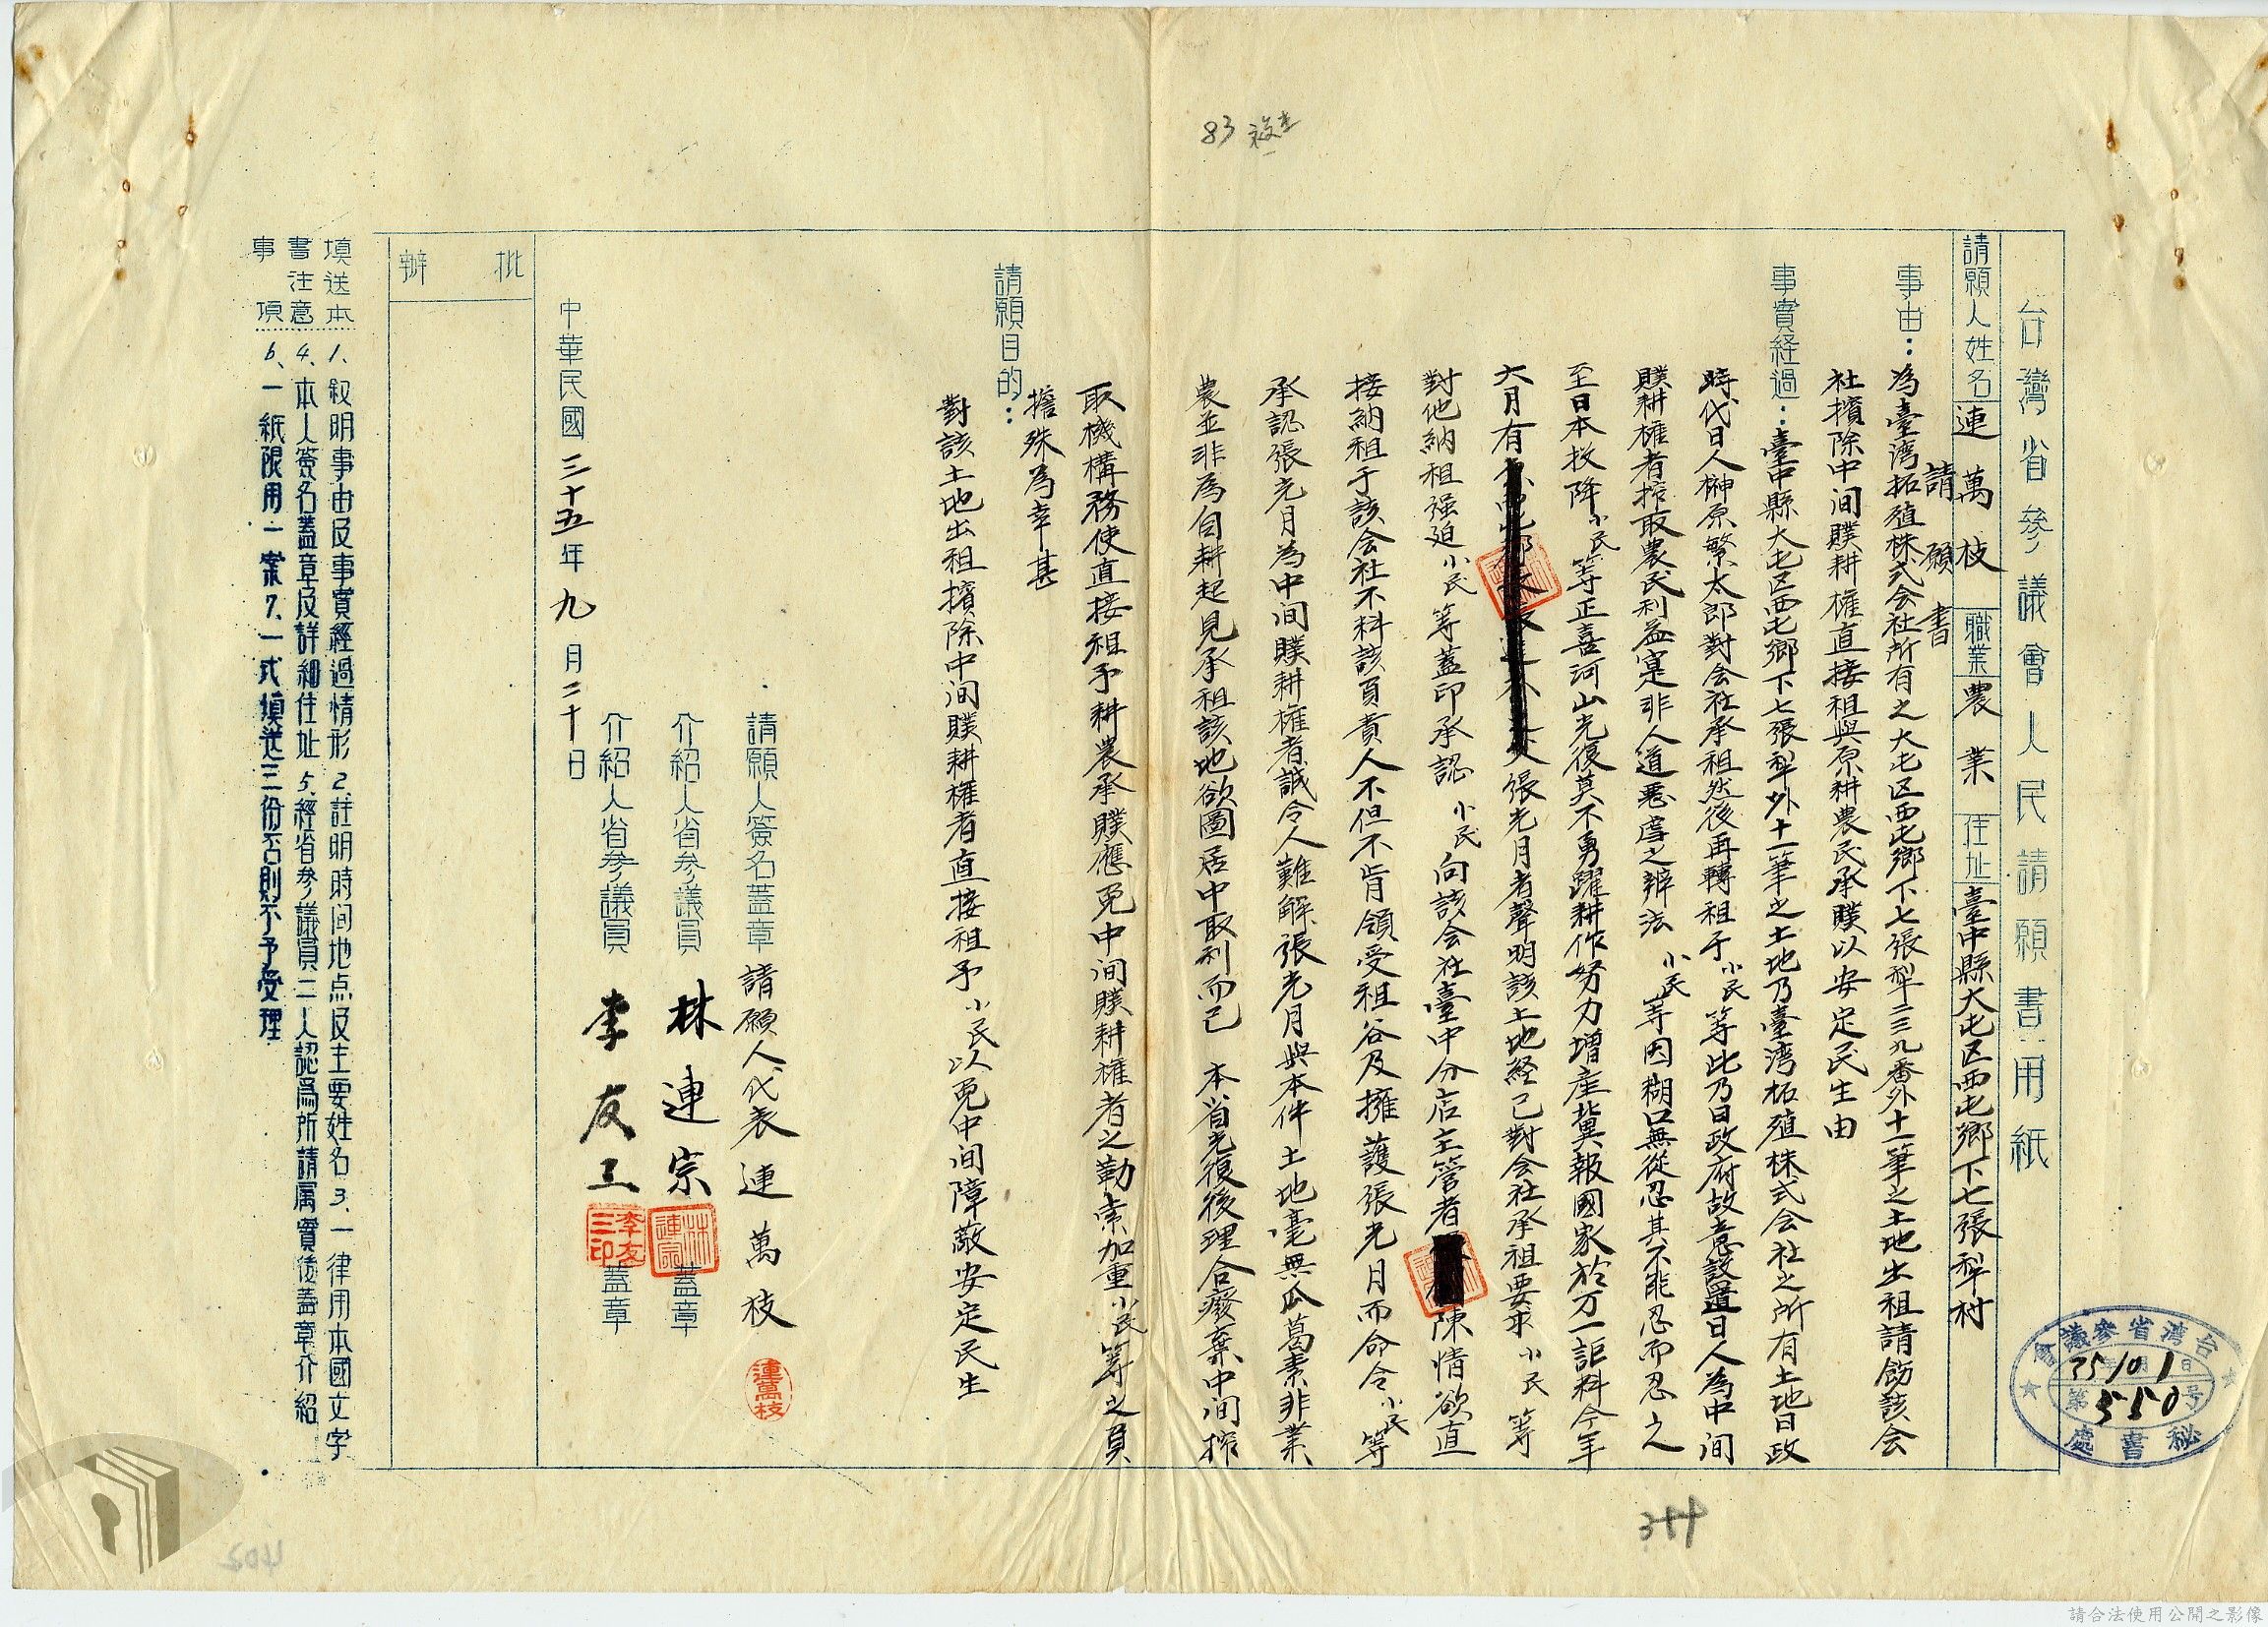 83
台灣省參議會人民請願書用紙
請願人姓名 連萬枝 職業 農業 住址 臺中縣大屯区西屯鄉下七張犁村
請願書
事由：為臺湾拓殖株式会社所有之大屯区西屯鄉下七張犁二三九番外十一筆之土地出租請飭該会
社擯除中间贌耕權直接租與原耕農民承贌以安定民生由
事實経過：臺中縣大屯区西屯鄉下七張犁外十一筆之土地乃臺湾拓殖株式会社之所有土地日政
時代日人榊原繁太郎對会社承租然後再轉租于小民等此乃日政府故意設置日人為中间
贌耕權者搾取農民利益寔非人道悪虐之辨法 小民等因糊口無從忍其不能忍而忍之
至日本投降小民等正喜河山光復莫不勇躍耕作努力增産冀報國家於万一詎料今年
六月有 張光月者聲明該土地経己對会社承租要求小民等
對他納租强迫小民等蓋印承認 小民向該会社臺中分店主管者 陳情欲直
接納租于該会社不料該負責人不但不肯領受租谷及擁護張光月而命令小民等
承認張光月為中间贌耕權者誠令人難解張光月與本件土地毫無瓜葛素非業
農並非為自耕起見承租該地欲圖居中取利而己 本省光復後理合癈棄中间搾
取機構務使直接租予耕農承贌應免中间贌耕權者之勒索加重小民等之負
擔殊為幸甚
請願目的：
對該土地出租擯除中间贌耕權者直接租予小民以免中间障蔽安定民生
請願人簽名蓋章 請願人代表 連萬枝
連萬枝
介紹人省參議員 林連宗 蓋章
林連宗
介紹人省參議員 李友三 蓋章
李友三印
中華民國三十五年九月二十日
批辦
填送本書注意事項
1、叙明事由及事實經過情形 2、註明時间地点及主要姓名 3、一律用本國文字
4、本人簽名蓋章及詳細住址 5、經省參議員二人認爲所請属實後蓋章介紹
6、一紙限用一案 7、一式填送三份否則不予受理
台湾省參議會
35 年 10 月 1 日
第 550 号
秘書處
請合法使用公開之影像